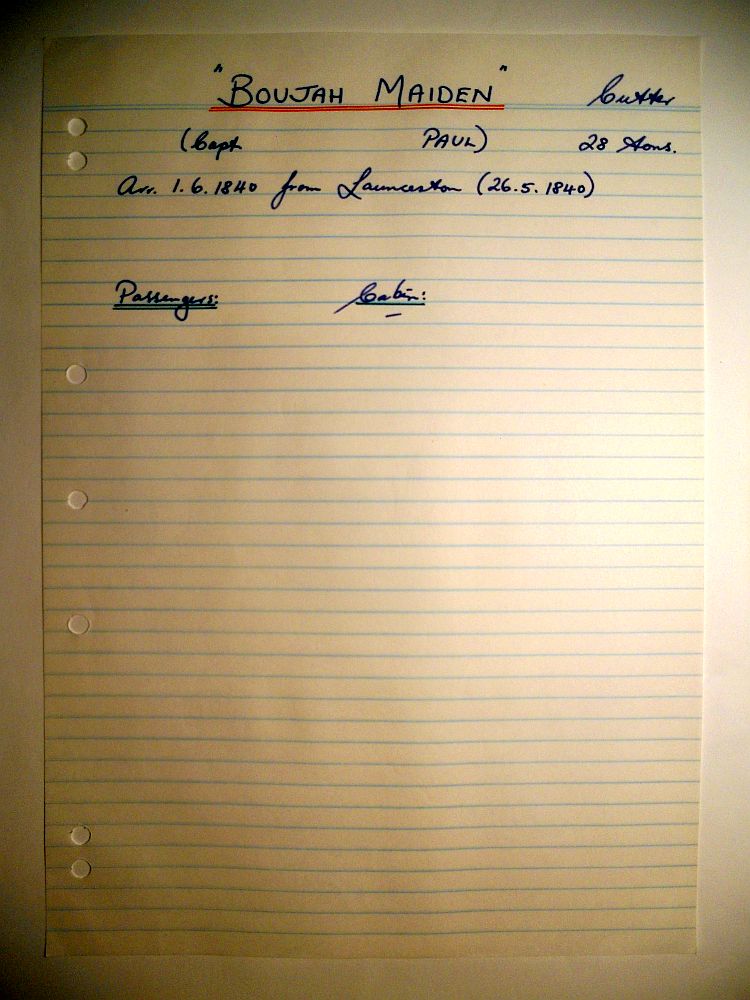 "BOUJAH MAIDEN" Cutter
(Capt PAUL) 28 tons.
Arr. 1.6.1840 from Launceston (26.5.1840)
Passengers: Cabin:
—